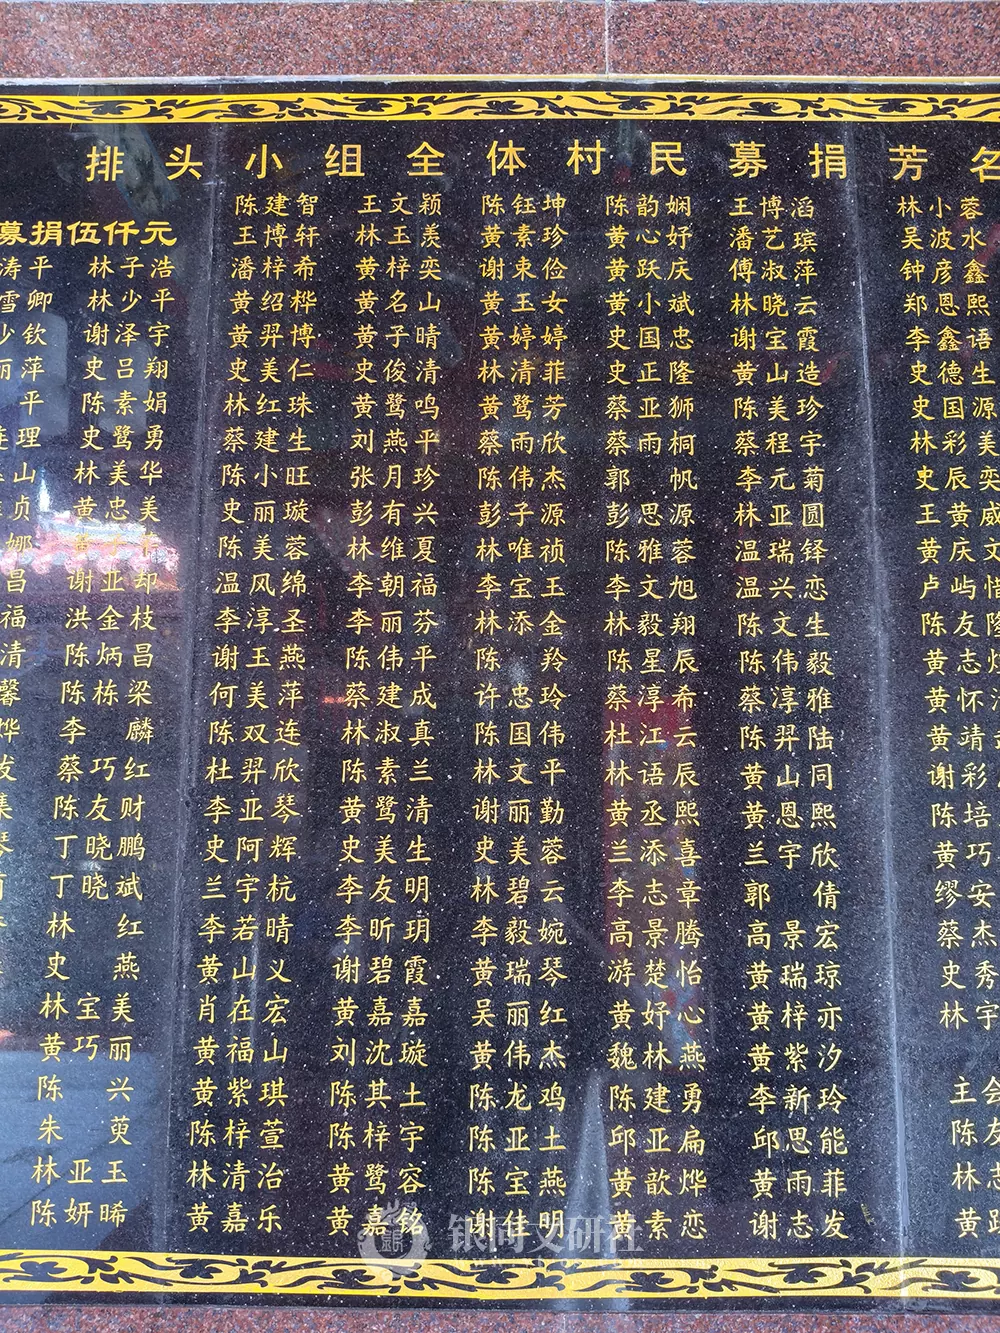 排头小组全体村民募捐芳名
募捐伍仟元
涛平 林子浩
雪卿 林少平
少钦 谢泽宇
丽萍 史吕翔
平 陈素娟
理 史鹭勇
山 林美华
贞 黄忠美
娜
昌 谢亚却
福 洪金枝
清 陈炳昌
馨 陈栋梁
烨 李麟
发 蔡巧红
集 陈友财
琴 丁晓鹏
丁晓斌
林红
史燕
林宝美
黄巧丽
陈兴
朱萸
林亚玉
陈妍晞
陈建智 王文颖 陈钰坤 陈韵娴 王博滔
王博轩 林玉羡 黄素珍 黄心妤 潘艺瑸
潘梓希 黄梓奕 谢束俭 黄跃庆 傅淑萍
黄绍桦 黄名山 黄玉女 黄小斌 林晓云
黄羿博 黄子晴 黄婷婷 史国忠 谢宝霞
史美仁 史俊清 林清菲 史正隆 黄山造
林红珠 黄鹭鸣 黄鹭芳 蔡亚狮 陈美珍
蔡建生 刘燕平 蔡雨欣 蔡雨桐 蔡程宇
陈小旺 张月珍 陈伟杰 郭帆 李元菊
史丽璇 彭有兴 彭子源 彭思源 林亚圆
陈美蓉 林维夏 林唯祯 陈雅蓉 温瑞铎
温风绵 李朝福 李宝玉 李文旭 温兴恋
李淳圣 李丽芬 林添金 林毅翔 陈文生
谢玉燕 陈伟平 陈羚 陈星辰 陈伟毅
何美萍 蔡建成 许忠玲 蔡淳希 蔡淳雅
陈双连 林淑真 陈国伟 杜江云 陈羿陆
杜羿欣 陈素兰 林文平 林语辰 黄山同
李亚琴 黄鹭清 谢丽勤 黄丞熙 黄恩熙
史阿辉 史美生 史美蓉 兰添喜 兰宇欣
兰宇杭 李友明 林碧云 李志章 郭倩
李若晴 李昕玥 李毅婉 高景腾 高景宏
黄山义 谢碧霞 黄瑞琴 游楚怡 黄瑞琼
肖在宏 黄嘉嘉 吴丽红 黄妤心 黄梓亦
黄福山 刘沈璇 黄伟杰 魏林燕 黄紫汐
黄紫琪 陈其土 陈龙鸡 陈建勇 李新玲
陈梓萱 陈梓宇 陈亚土 邱亚扁 邱思能
林清治 黄鹭容 陈宝燕 黄歆烨 黄雨菲
黄嘉乐 黄嘉铭 谢佳明 黄素恋 谢志发
林小蓉
吴波水
钟彦鑫
郑恩熙
李鑫语
史德生
史国源
林彩美
史辰奕
王黄威
黄庆文
卢屿
陈友
黄志
黄怀
黄靖
谢彩
陈培
黄巧
缪安
蔡杰
史秀
林宇
主会
陈友
林志
黄跃
银同文研社